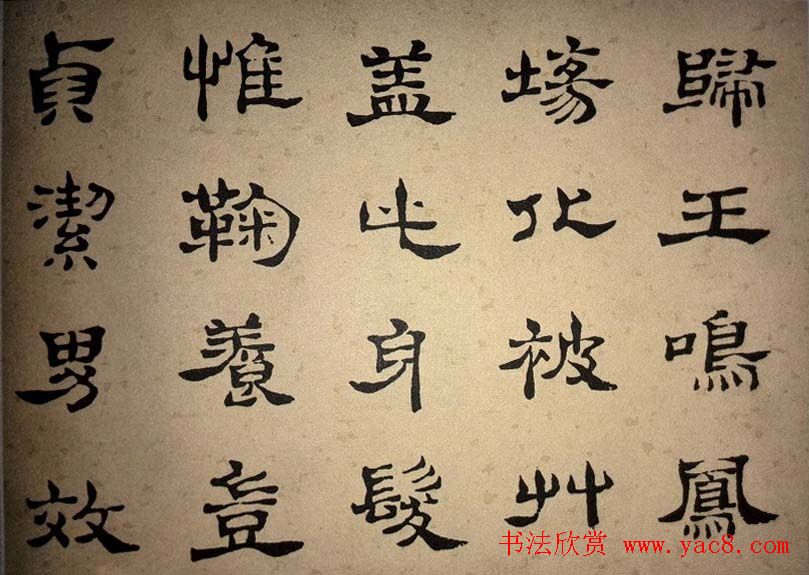 歸王鳴鳳
場化被艸
盖此身髮
惟鞠養豈
貞潔男效
书法欣赏 www.yac8.com